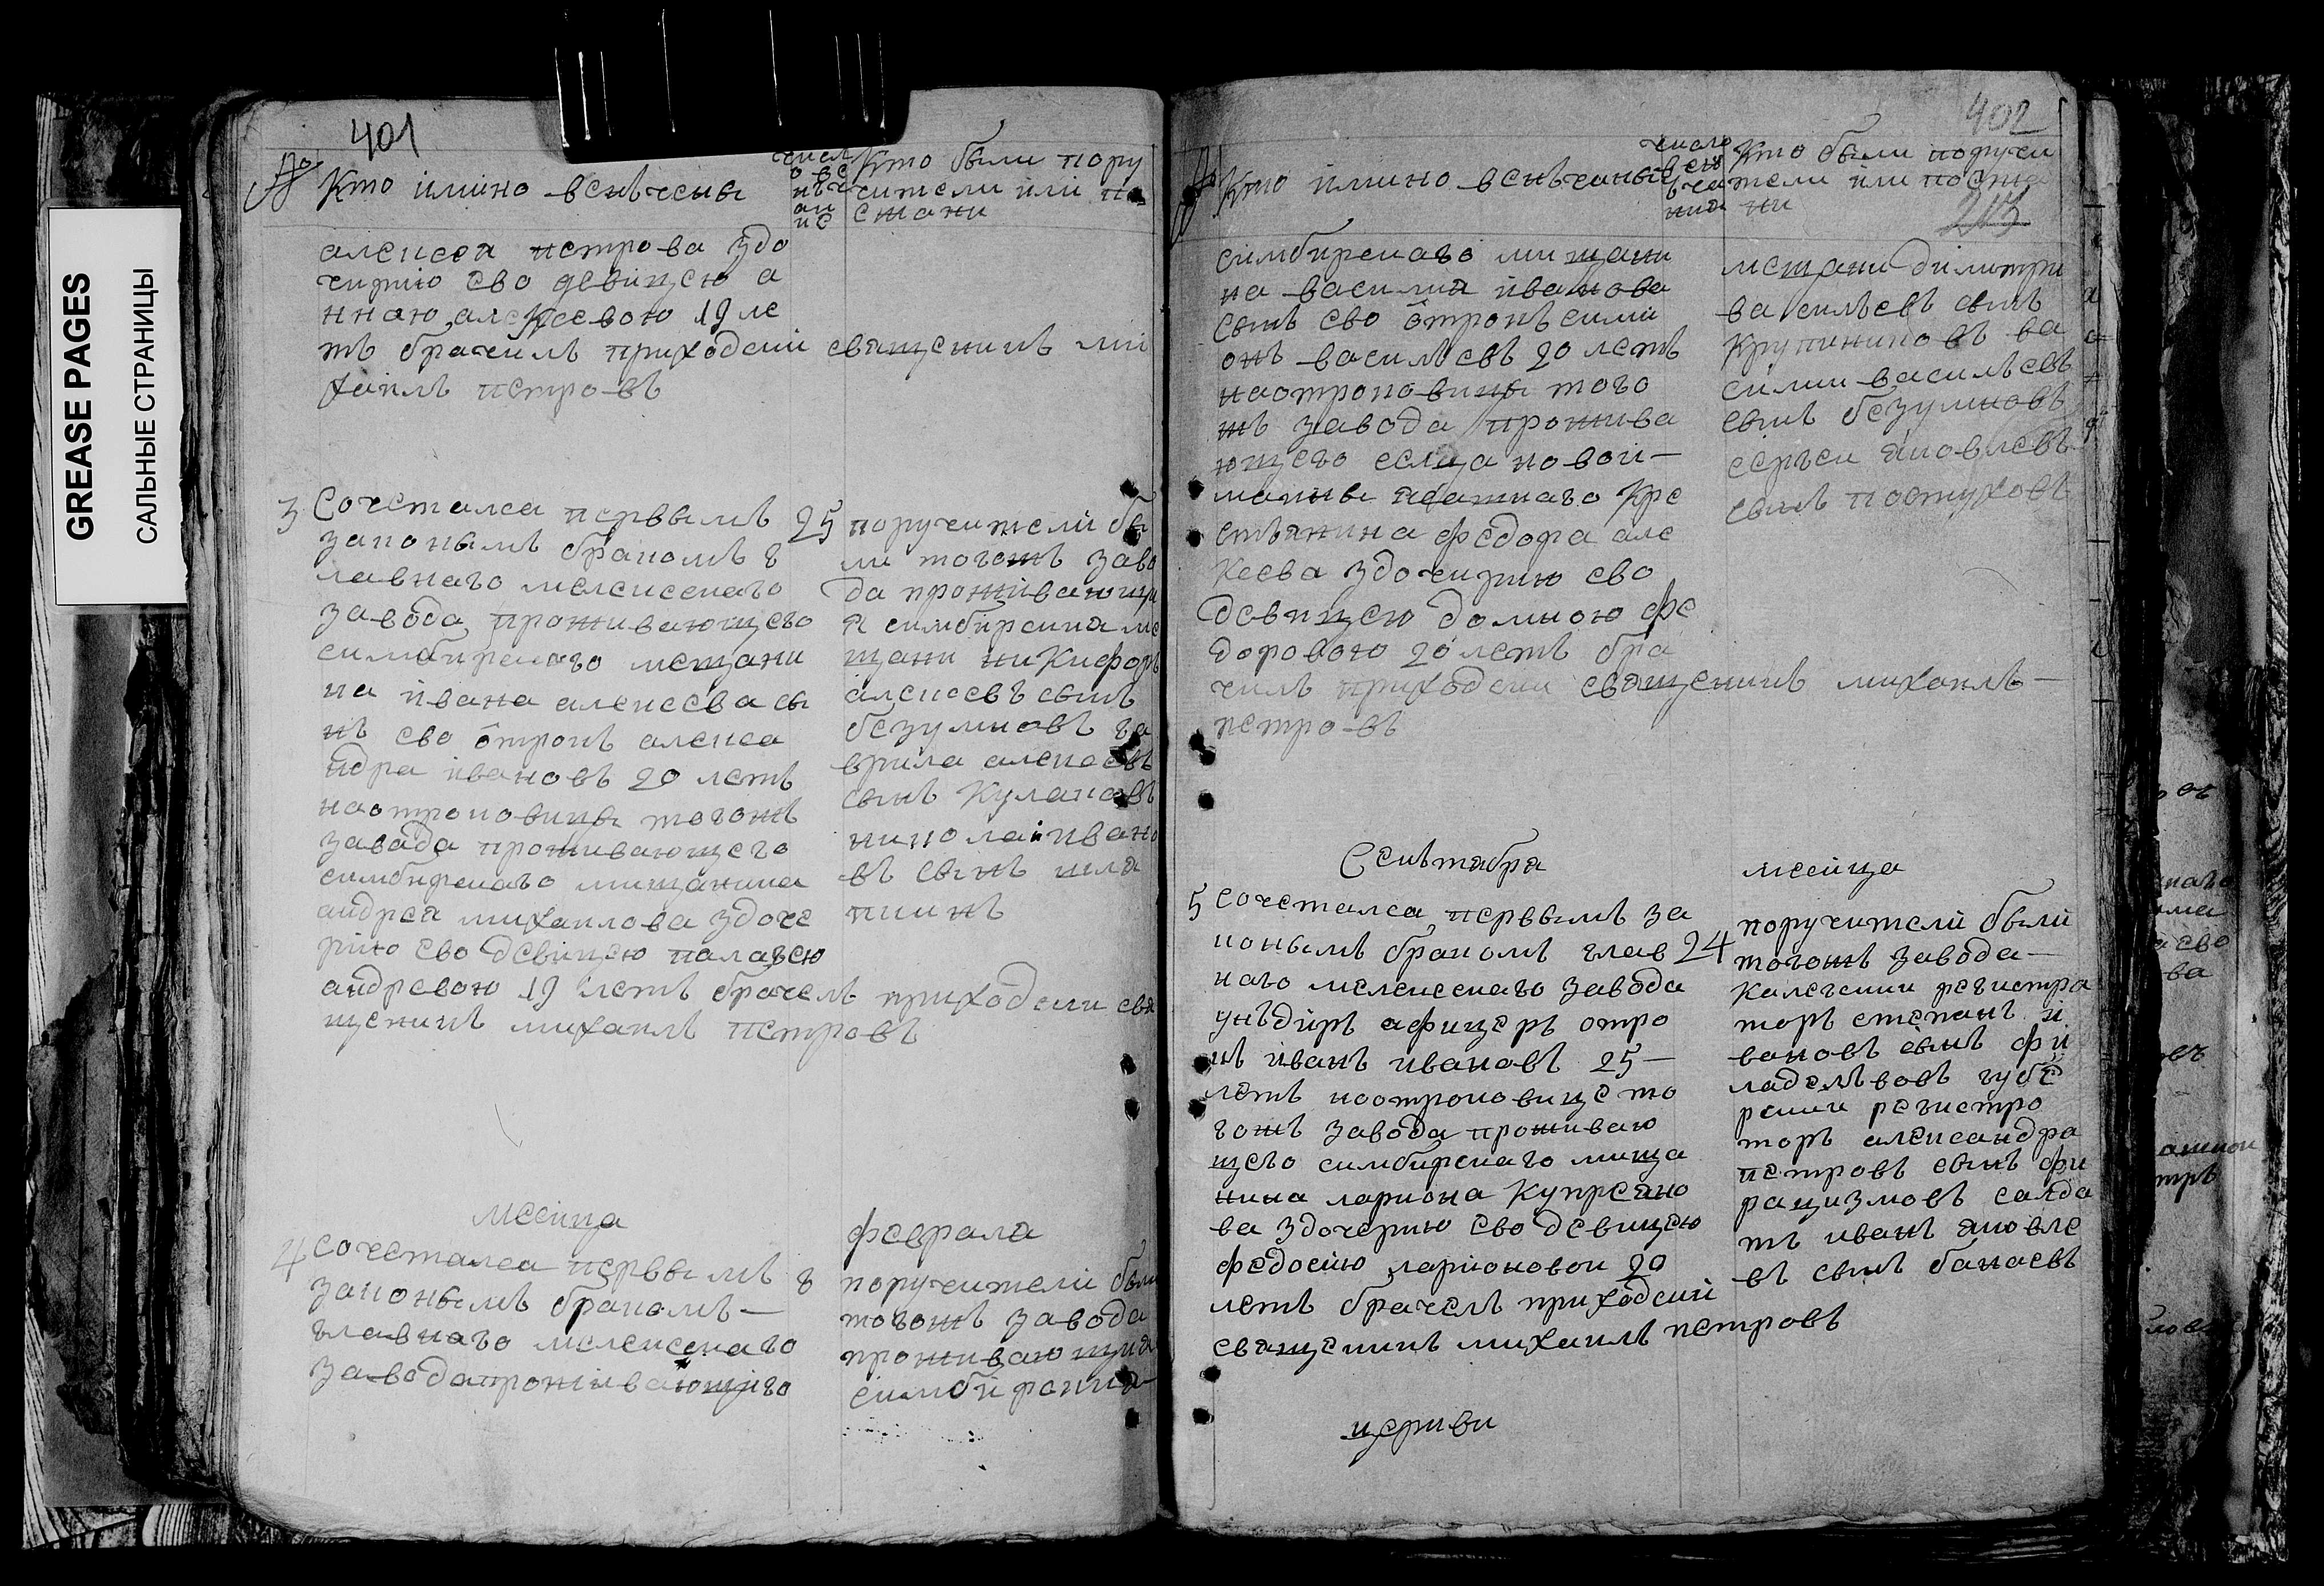 GREASE PAGES
САЛЬНЫЕ СТРАНИЦЫ
401
№
Кто имино венъчены
числ
о ве
нъч
ан
ие
Кто были пору
чители или по
езжани
алексея петрова здо
чирию ево девицею а
нною алексевою 19 ле
тъ брачилъ приходский священикъ ми
хаилъ петровъ
3
Сочетался первымъ
законымъ бракомъ г
лавнаго мелекескаго
завода проживающего
симбирскаго мещани
на ивана алексева сы
нъ ево отрокъ алекса
ндра ивановъ 20 летъ
наотроковицы тогожъ
завода проживающего
симбирскаго мищанина
андрея михаилова здоче
рию ево девицею палагею
андревою 19 летъ брачелъ приходски свя
щеникъ михаилъ петровъ
25
поручители бы
ли тогожъ заво
да проживающи
я симбирския ме
щани никифоръ
алексевъ сынъ
безумновъ га
врила алексевъ
сынъ Кулаковъ
николаи ивано
въ сынъ шла
пкинъ
месица
февраля
4
сочетался первымъ
законымъ бракомъ
главнаго мелекескаго
завода проживающиго
8
поручители были
тогожъ завода
проживающия
симбирския
402
213
№
Кто имино венъчаные
число
вен
ъча
ния
Кто были поручи
тели или поезжа
ни
симбирскаго мищани
на василия иванова
сынъ ево отрокъ сими
онъ василъевъ 20 летъ
наотроковицы того
жъ завода прожива
ющего селца новои
маины ясашнаго Кре
стьянина федора але
Ксева здочирию ево
девицею домною фе
доровою 20 летъ бра
чилъ приходски священикъ михаилъ
петровъ
мещани димитри
василъевъ сынъ
Крупениковъ ва
сили василъевъ
сынъ безумновъ
сергеи яковлевъ
сынъ пастуховъ
Сенътября
месица
5
сочетался первымъ за
конымъ бракомъ глав
наго мелекескаго завода
унъдиръ афицеръ отро
къ иванъ ивановъ 25
летъ наотроковице то
гожъ завода проживаю
щего симбирскаго мища
нина лариона Купреяно
ва здочерию ево девицею
федосию ларионовои 20
летъ брачелъ приходский
священикъ михаилъ петровъ
24
поручители были
тогожъ завода
Калегкии регистра
торъ степанъ и
вановъ сынъ фи
ладелъвовъ губе
рнкии регистро
торъ александра
петровъ сынъ фи
рацизмовъ салда
тъ иванъ яковле
въ сынъ бакаевъ
церкви